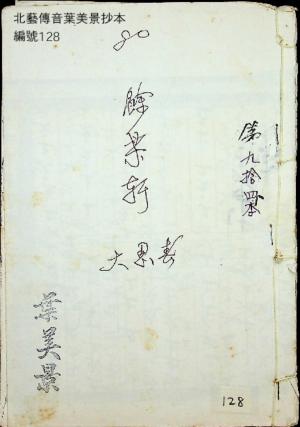 北藝傳音葉美景抄本
編號128
80
餘樂軒
大墨壽
第九拾四本
葉美景
128